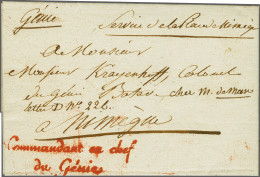 Génie
Service de la Place de Nimeg
A Monsieur
Monsieur Krayenhoff, Colonel
du Génie Batav. chez M. de Man
lettre D No. 226.
à Nimègue
Commandant en chef
du Génie